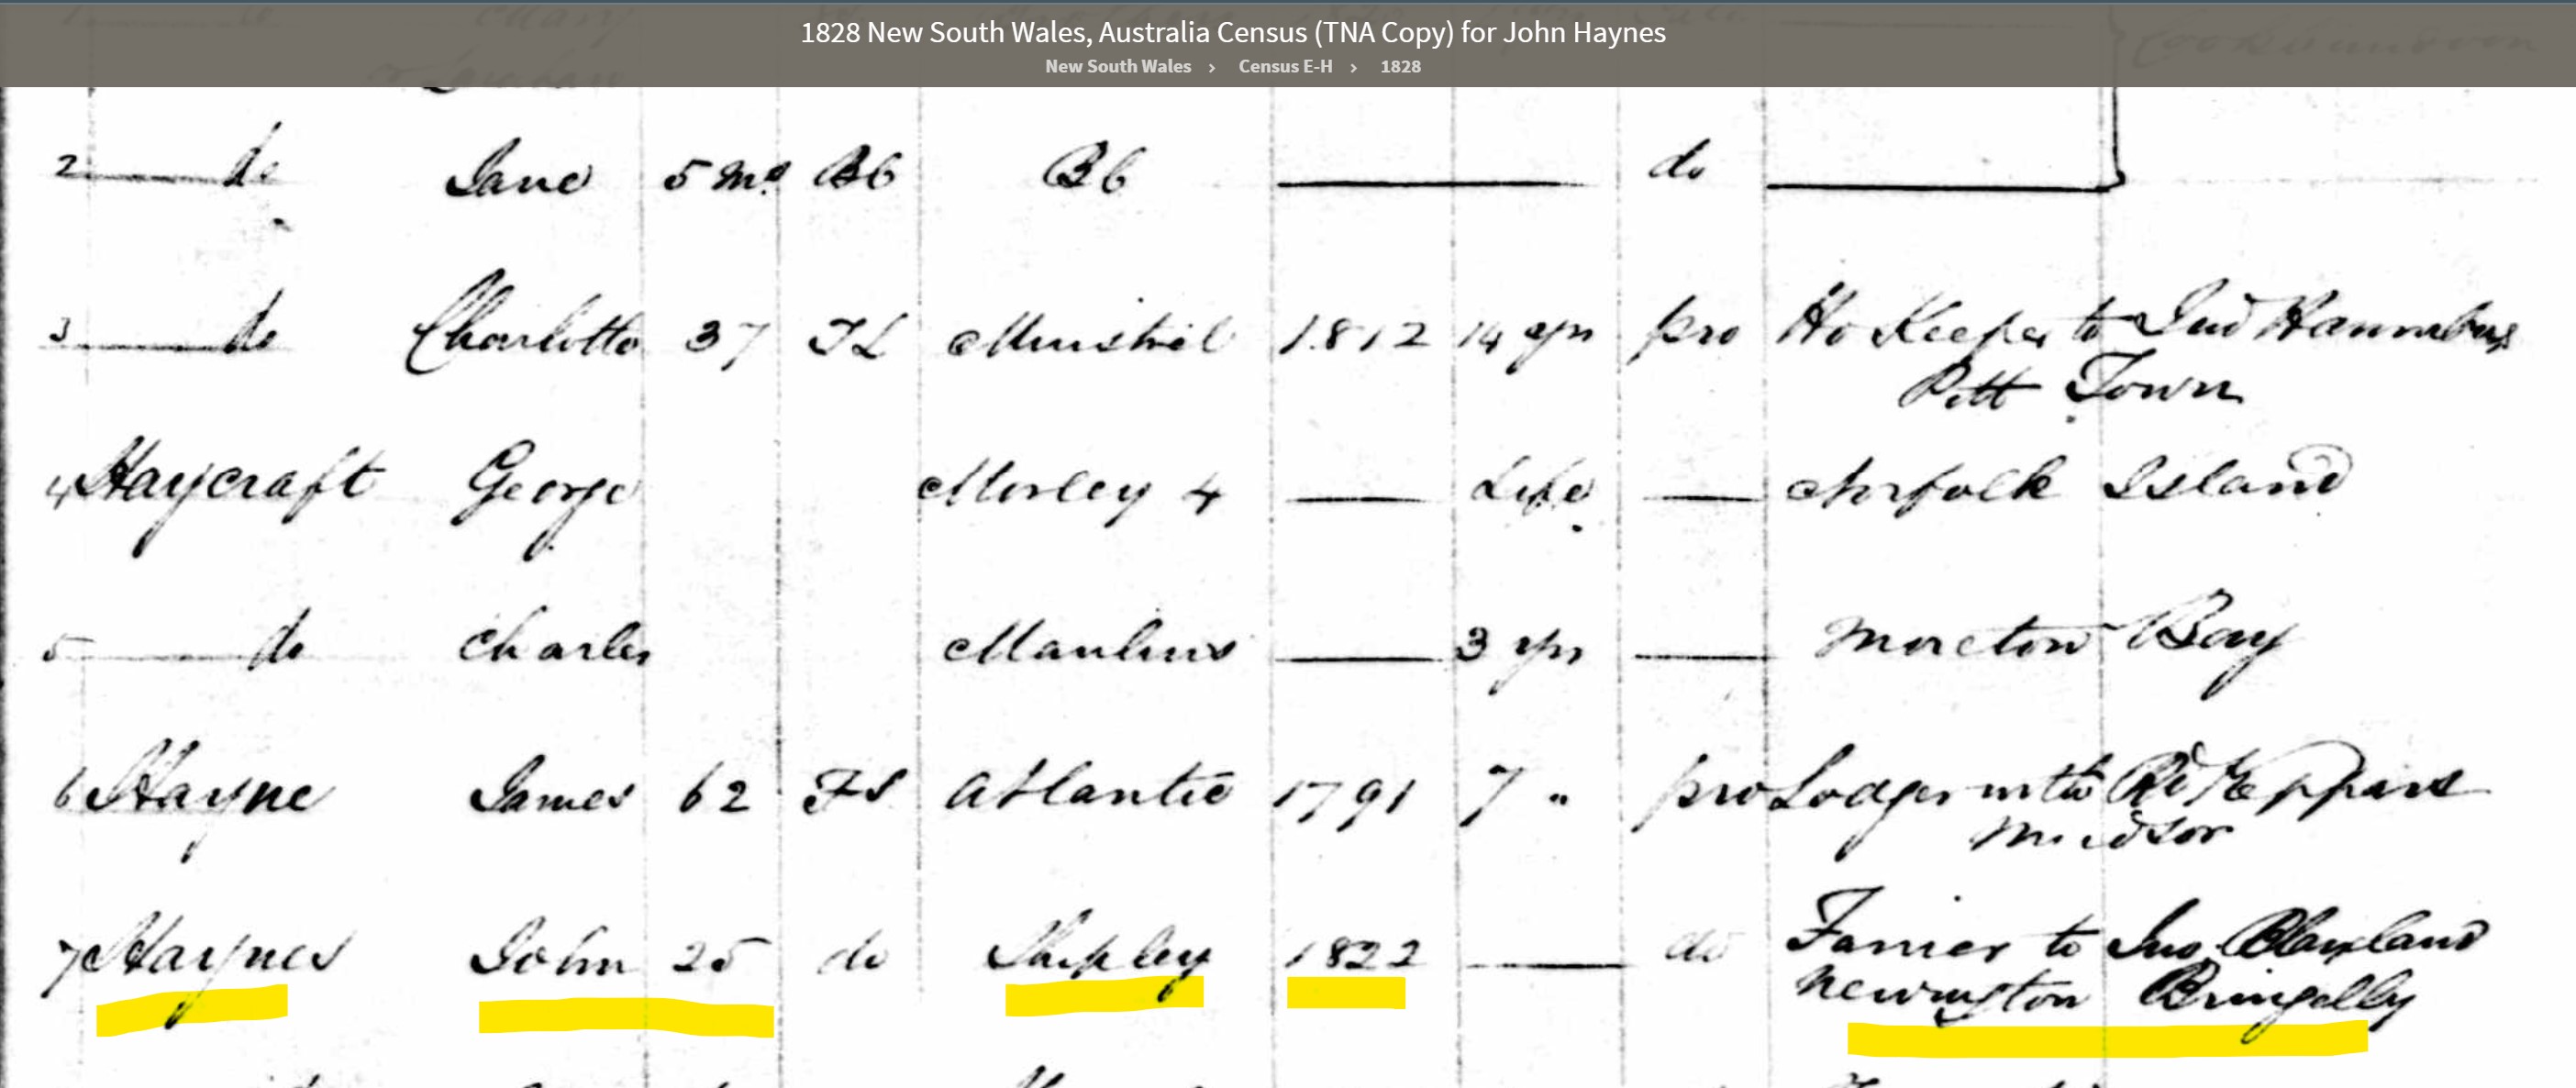 1828 New South Wales, Australia Census (TNA Copy) for John Haynes
New South Wales › Census E-H › 1828
2 do Jane 5 Mos BC BC do
3 do Charlotte 37 TL Minstrel 1812 14 yrs pro Ho Keeper to
Pitt Town
4 Haycraft George Morley 4 Life Norfolk Island
5 do Charles Manlius 3 yrs Moreton Bay
6 Hayne James 62 FS Atlantic 1791 7 " pro Lodger with Rd
Windsor
7 Haynes John 25 do Shipley 1822 do Farrier to Jno. Blaxland
Newington Bringelly